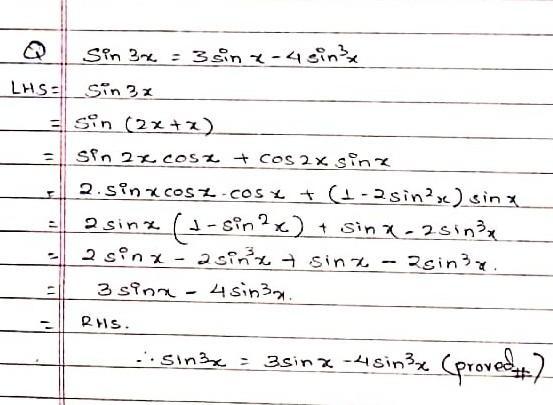 Q Sin 3x = 3 sin x - 4 sin³x
LHS = Sin 3x
= Sin (2x + x)
= Sin 2x cosx + cos 2x sinx
= 2. sin x cos x . cos x + (1 - 2sin²x) sin x
= 2 sin x (1 - sin²x) + sin x - 2 sin³x
= 2 sin x - 2 sin³x + sin x - 2sin³x.
= 3 sinx - 4 sin³x.
= RHS.
∴ sin3x = 3sin x - 4 sin³x (proved#)